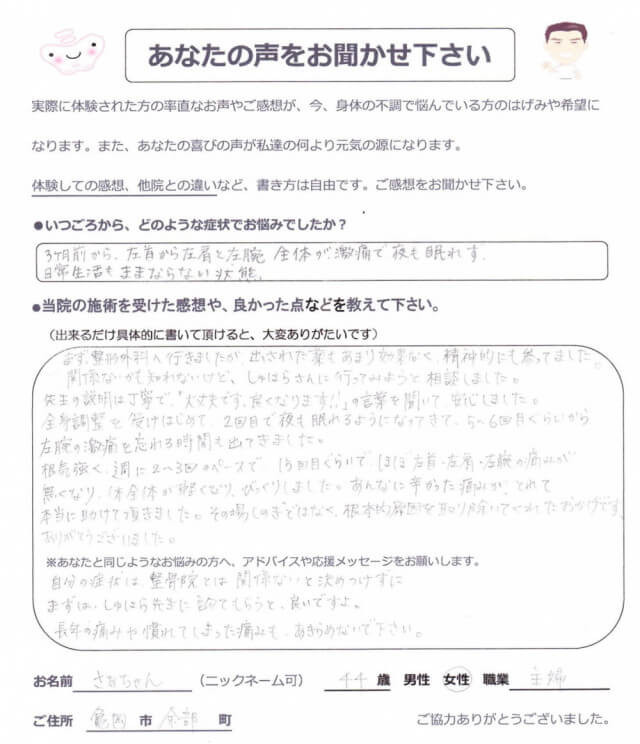 あなたの声をお聞かせ下さい
実際に体験された方の率直なお声やご感想が、今、身体の不調で悩んでいる方のはげみや希望に
なります。また、あなたの喜びの声が私達の何より元気の源になります。
体験しての感想、他院との違いなど、書き方は自由です。ご感想をお聞かせ下さい。
●いつごろから、どのような症状でお悩みでしたか？
3ヶ月前から、左首から左肩と左腕 全体が激痛で夜も眠れず、
日常生活もままならない状態。
●当院の施術を受けた感想や、良かった点などを教えて下さい。
（出来るだけ具体的に書いて頂けると、大変ありがたいです）
まず、整形外科へ行きましたが、出された薬もあまり効果なく、精神的にも参ってました。
関係ないかも知れないけど、しゅはらさんに行ってみようと相談しました。
先生の説明は丁寧で、"大丈夫です、良くなります!!"の言葉を聞いて 安心しました。
全身調整を 受けはじめて、2回目で夜も眠れるようになってきて、5〜6回目ぐらいから
左腕の激痛を忘れる時間も出てきました。
根気強く、週に2〜3回のペースで、15回目ぐらいで、ほぼ左首・左肩・左腕の痛みが
無くなり、体全体が軽くなり、びっくりしました。あんなに辛かった痛みが、とれて
本当に助けて頂きました。その場しのぎではなく、根本的原因を取り除いてくれたおかげです。
ありがとうございました。
※あなたと同じようなお悩みの方へ、アドバイスや応援メッセージをお願いします。
自分の症状は、整骨院とは 関係ないと決めつけずに
まずは、しゅはら先生に 診てもらうと、良いですよ。
長年の痛みや慣れてしまった痛みも、あきらめないで下さい。
お名前 さなちゃん （ニックネーム可） 44 歳 男性 女性 職業 主婦
ご住所 亀岡 市 余部 町 ご協力ありがとうございました。